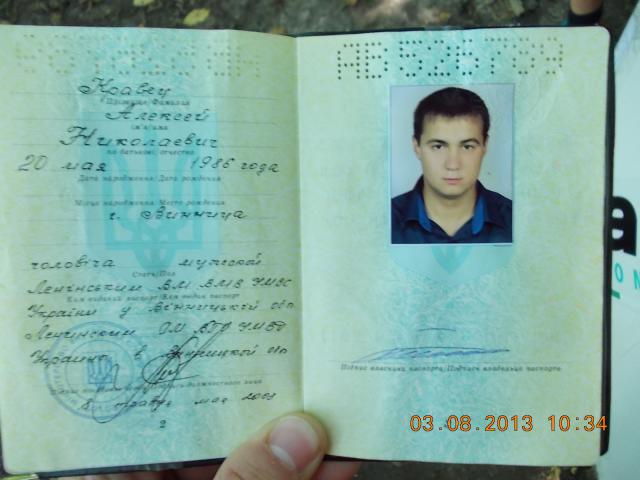 АВ
Кравец
Прізвище/Фамилия
Алексей
Ім'я/Имя
Николаевич
По батькові/Отчество
20 мая 1986 года
Дата народження/Дата рождения
Місце народження/Место рождения
г. Винница
чоловіча мужской
Стать/Пол
Ленінським ВМ УМВС
Ким виданий паспорт/Кем выдан паспорт
України у Вінницькій обл
Ленинским УМВД
Украины в Винницкой обл
Підпис власника паспорта/Подпись владельца паспорта
8 травня мая
2
03.08.2013 10:34